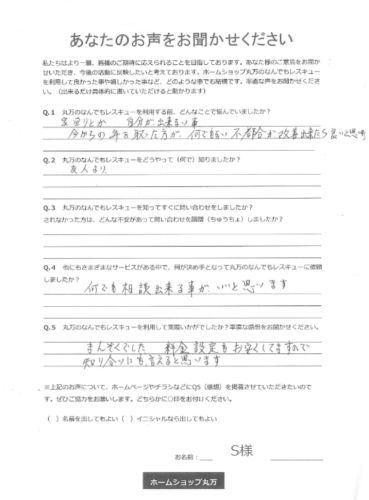 あなたのお声をお聞かせください
私たちはより一層、皆様のご期待に応えられることを目指しております。あなた様のご意見をお聞か
せいただき、今後の活動に反映したいと考えております。ホームショップ丸万のなんでもレスキュー
を利用して良かった事や嬉しかった事など、どのような事でも結構です。率直な声をお聞かせくださ
い。（出来るだけ具体的に書いていただけると助かります）
Q.1 丸万のなんでもレスキューを利用する前、どんなことで悩んでいましたか？
自分が出来ない事
今からの年を取った方が、何でもない不都合が改善出来たら良いと思
Q.2 丸万のなんでもレスキューをどうやって（何で）知りましたか？
友人より
Q.3 丸万のなんでもレスキューを知ってすぐに問い合わせをしましたか？
されなかった方は、どんな不安があって問い合わせを躊躇（ちゅうちょ）しましたか？
Q.4 他にもさまざまなサービスがある中で、何が決め手となって丸万のなんでもレスキューに依頼
しましたか？
何でも相談出来る事が、いいと思います
Q.5 丸万のなんでもレスキューを利用して実際いかがでしたか？率直な感想をお聞かせください。
まんぞくでした 料金設定もお安くしてますので
知り合いにも言えると思います
※上記のお声について、ホームページやチラシなどにQ5（感想）を掲載させていただきたいので
す。ぜひご協力をお願いします。どちらかに○印をお付けください。
（ ）名前を出してもよい （ ）イニシャルなら出してもよい
お名前：＿＿ S様
ホームショップ丸万